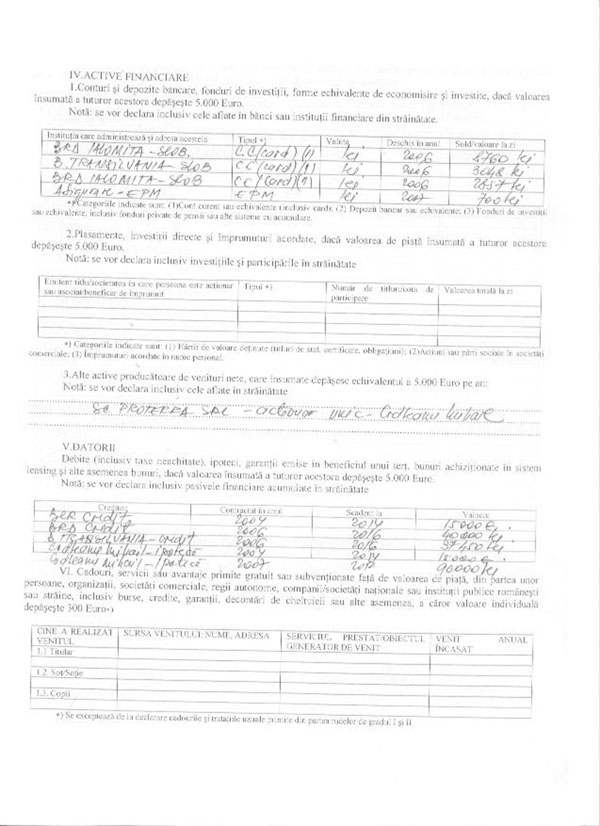 IV.ACTIVE FINANCIARE
1.Conturi și depozite bancare, fonduri de investiții, forme echivalente de economisire și investire, dacă valoarea
însumată a tuturor acestora depășește 5.000 Euro.
Notă: se vor declara inclusiv cele aflate în bănci sau instituții financiare din străinătate.
Instituția care administrează și adresa acesteia Tipul *) Valuta Deschis în anul Sold/valoare la zi
BRD IALOMITA-SLOB. CC(card)(1) lei 2006 8760 lei
B. TRANSILVANIA-SLOB CC(card)(1) lei 2006 lei
BRD IALOMITA-SLOB CC(card)(1) lei 2006 lei
EPM EPM lei 2007 700 lei
*)Categoriile indicate sunt: (1)Cont curent sau echivalente (inclusiv card); (2) Depozit bancar sau echivalente; (3) Fonduri de investiții
sau echivalente, inclusiv fonduri private de pensii sau alte sisteme cu acumulare.
2.Plasamente, investiții directe și împrumuturi acordate, dacă valoarea de piață însumată a tuturor acestora
depășește 5.000 Euro.
Notă: se vor declara inclusiv investițiile și participările în străinătate
Emitent titlu/societatea în care persoana este acționar Tipul *) Număr de titluri/cota de Valoarea totală la zi
sau asociat/beneficiar de împrumut participare
*) Categoriile indicate sunt: (1) Hârtii de valoare deținute (titluri de stat, certificate, obligațiuni); (2)Acțiuni sau părți sociale în societăți
comerciale; (3) Împrumuturi acordate în nume personal.
3.Alte active producătoare de venituri nete, care însumate depășesc echivalentul a 5.000 Euro pe an:
Notă: se vor declara inclusiv cele aflate în străinătate
SC PROTERRA SRL - unic -
V.DATORII
Debite (inclusiv taxe neachitate), ipoteci, garanții emise în beneficiul unui terț, bunuri achiziționate în sistem
leasing și alte asemenea bunuri, dacă valoarea însumată a tuturor acestora depășește 5.000 Euro.
Notă: se vor declara inclusiv pasivele financiare acumulate în străinătate
Creditor Contractat în anul Scadent la Valoare
BCR Credit 2004 2014 15000 €
BRD Credit 2006 2016 40000 lei
B. TRANSILVANIA-credit 2006 2016 lei
Mihail-ipotecă 2004 2014 15000 €
Mihail-ipotecă 2007 2012 90000 lei
VI. Cadouri, servicii sau avantaje primite gratuit sau subvenționate față de valoarea de piață, din partea unor
persoane, organizații, societăți comerciale, regii autonome, companii/societăți naționale sau instituții publice românești
sau străine, inclusiv burse, credite, garanții, decontări de cheltuieli sau alte asemenea, a căror valoare individuală
depășește 300 Euro*)
CINE A REALIZAT SURSA VENITULUI: NUME, ADRESA SERVICIUL PRESTAT/OBIECTUL VENIT ANUAL
VENITUL GENERATOR DE VENIT ÎNCASAT
1.1 Titular
1.2. Soț/Soție
1.3. Copii
*) Se exceptează de la declarare cadourile și tratațiile uzuale primite din partea rudelor de gradul I și II